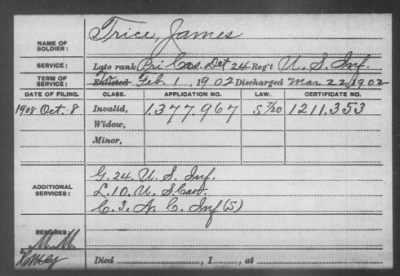 NAME OF SOLDIER: Trice, James
SERVICE: Late rank Pri Cas. Det 24 Reg't U. S. Inf.
TERM OF SERVICE: Enlisted Feb. 1, 1902 Discharged Mar 22, 1902
DATE OF FILING. CLASS. APPLICATION NO. LAW. CERTIFICATE NO.
1908 Oct. 8 Invalid, 1.377.967 1.211.353
Widow,
Minor,
ADDITIONAL SERVICES: G. 24. U. S. Inf.
L. 10. U. S. Cav.
C. 3. A. C. Inf (5)
REMARKS:
Died , 1 , at